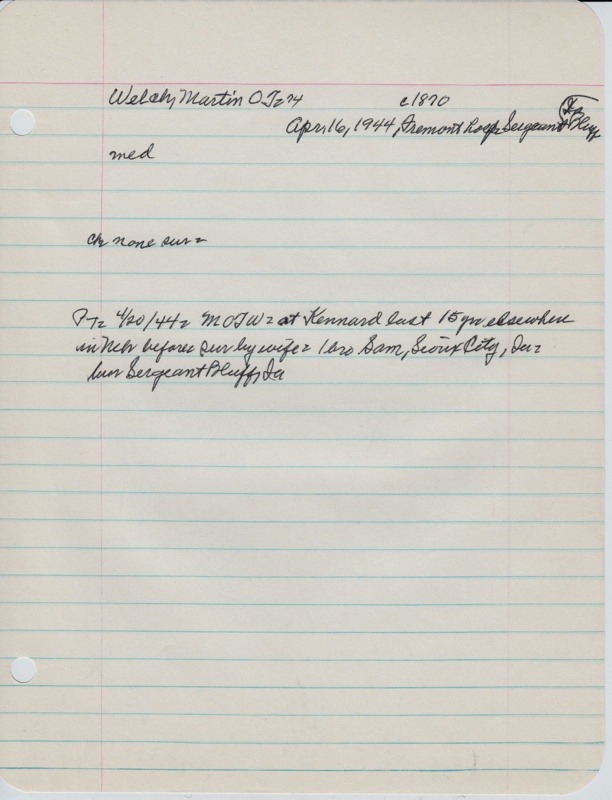 Welch, Martin O J= 74 c1870
Apr 16, 1944, Fremont hosp Sergeant Bluff, Ia
med
ch none sur=
P-T= 4/20/44= MOJW= at Kennard last 15 yr elsewhere
in Neb before= sur by wife= 1 bro Sam, Sioux City, Ia=
bur Sergeant Bluff, Ia